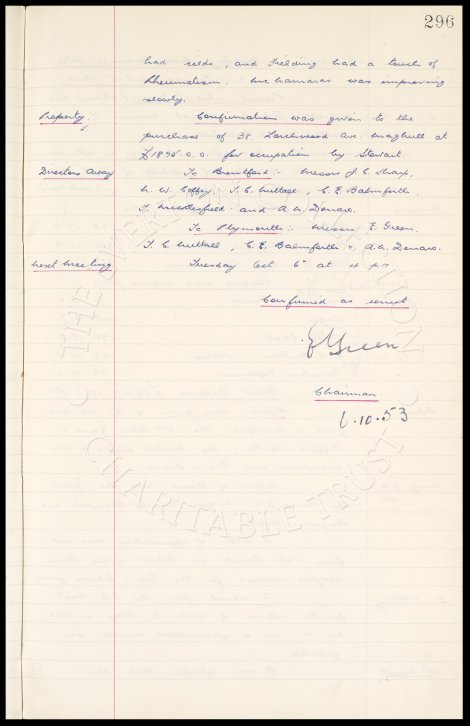 296
had colds, and Fielding had a touch of
Rheumatism. McNamaras was improving
slowly.
Property. Confirmation was given to the
purchase of 38 Larchwood Ave. Maghull at
£1895.0.0. for occupation by Stewart.
Directors Away To Brentford:- Messrs J. C. Sharp,
W. W. Coffey, T. C. Nuttall, C. E. Balmforth,
T. and A. W. Denaro.
To Plymouth:- Messrs E. Green.
T. C. Nuttall, C. E. Balmforth & A. W. Denaro.
Next Meeting Tuesday Oct 6th at 4 pm
Confirmed as correct
E Green
Chairman
6.10.53
THE EVERTON COLLECTION
CHARITABLE TRUST